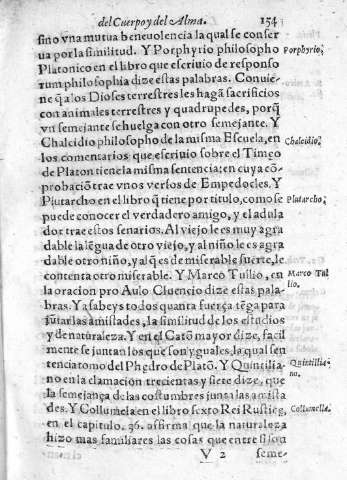 del Cuerpo y del Alma. 154
sino vna mutua beneuolencia la qual se conser
ua por la similitud. Y Porphyrio philosopho
Porphyrio.
Platonico en el libro que escriuio de responso
rum philosophia dize estas palabras. Conuie-
ne q̃ a los Dioses terrestres les hagã sacrificios
con animales terrestres y quadrupedes, porq̃
vn semejante se huelga con otro semejante. Y
Chalcidio philosopho de la misma Escuela, en
Chalcidio.
los comentarios que escriuio sobre el Timeo
de Platon tiene la misma sentencia: en cuya cõ-
probaciõ trae vnos versos de Empedocles. Y
Plutarcho en el libro q̃ tiene por titulo, como se
Plutarcho.
puede conocer el verdadero amigo, y el adula
dor trae estos senarios. Al viejo le es muy agra
dable la lẽgua de otro viejo, y al niño le es agra
dable otro niño, y al q̃ es de miserable suerte, le
contenta otro miserable. Y Marco Tulio, en
Marco Tu
lio.
la oracion pro Aulo Cluencio dize estas pala-
bras. Ya sabeys todos quanta fuerça tẽga para
jũtar las amistades, la similitud de los estudios
y de naturaleza. Y en el Catõ mayor dize, facil
mente se juntan los que son yguales, la qual sen
tencia tomo del Phedro de Platõ. Y Quintilia-
Quintilia-
no.
no en la clamacion trecientas y siete dize, que
la semejança de las costumbres junta las amista
des. Y Collumela en el libro sexto Rei Rustice,
Collumella.
en el capitulo. 36. affirma que la naturaleza
hizo mas familiares las cosas que entre si son
V 2 seme-